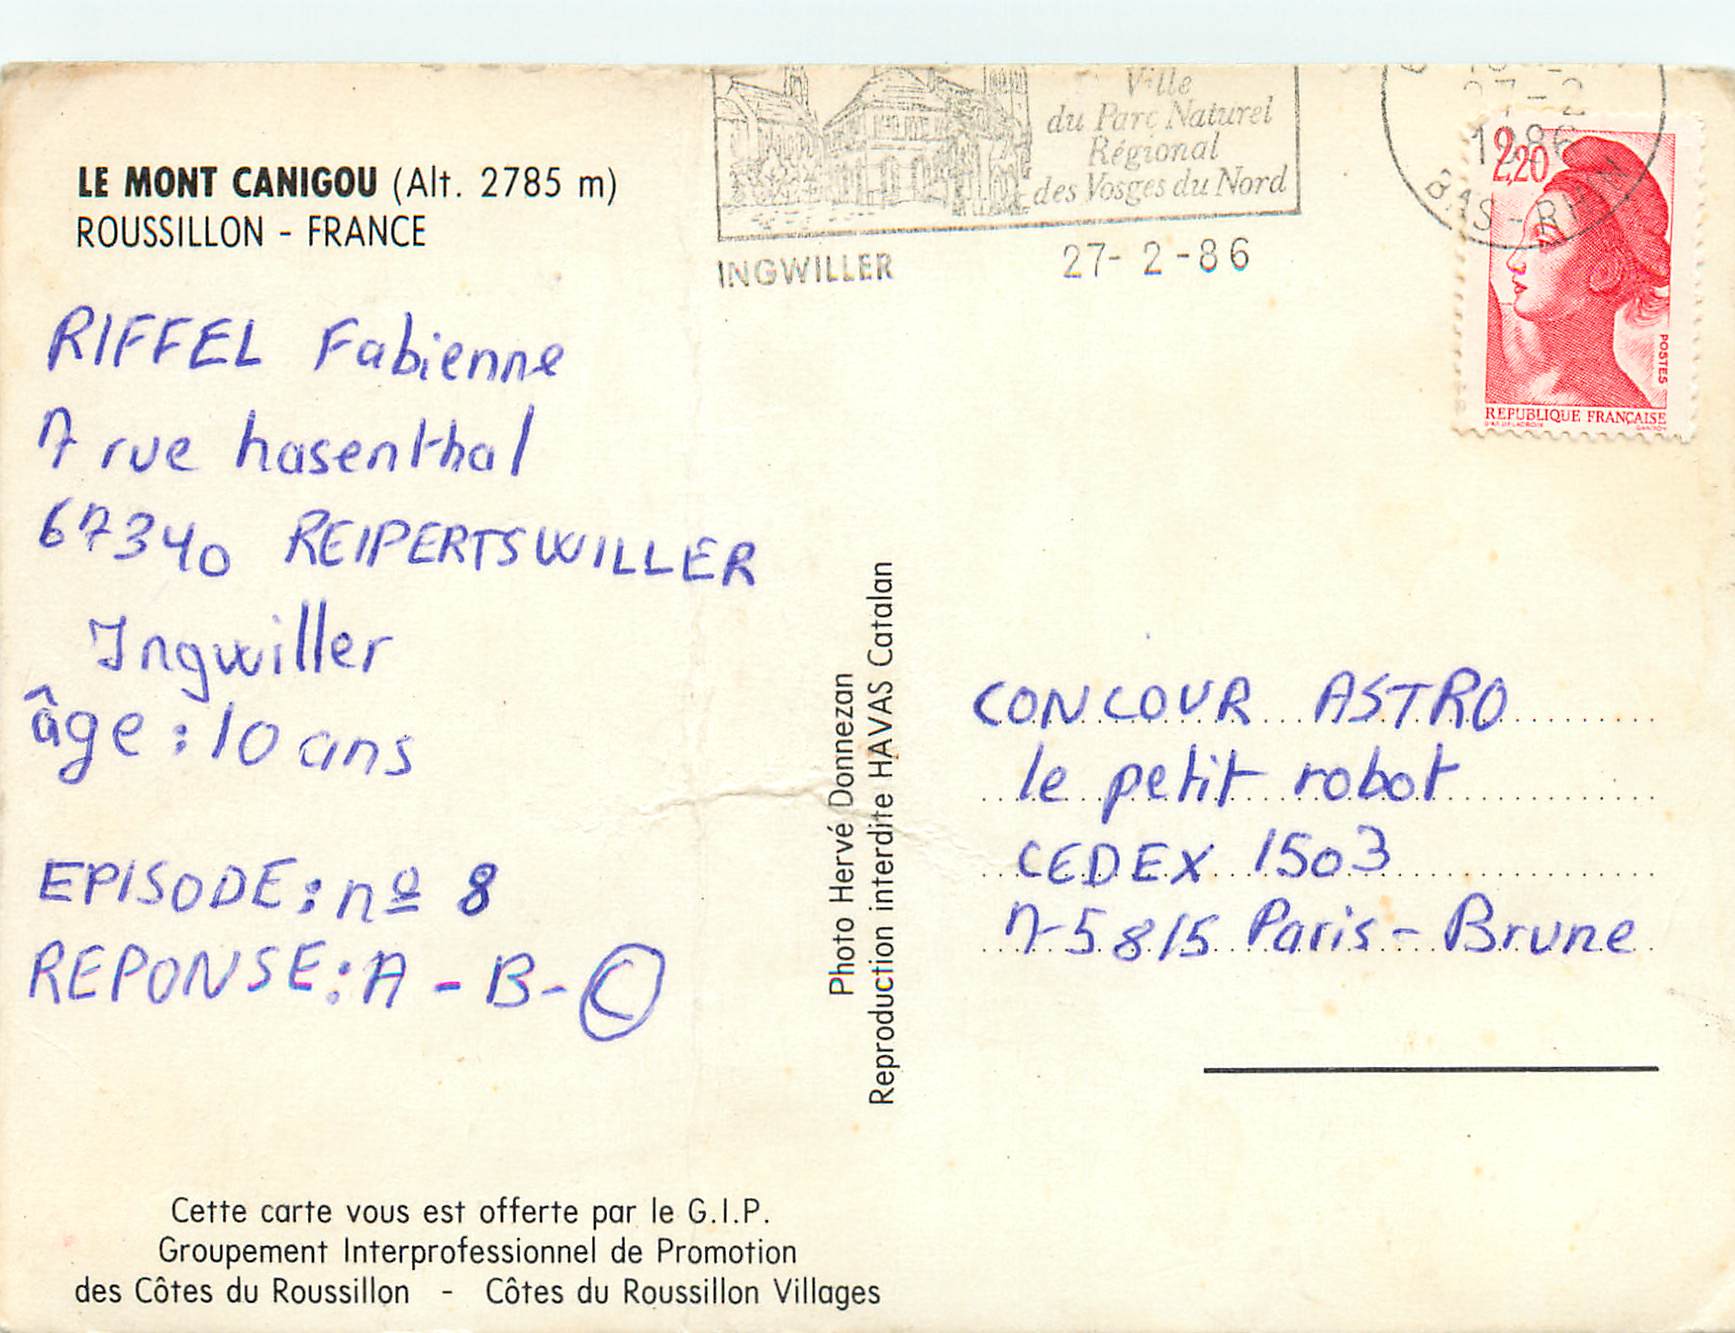 LE MONT CANIGOU (Alt. 2785 m)
ROUSSILLON - FRANCE
Ville
du Parc Naturel
Régional
des Vosges du Nord
INGWILLER
27- 2 -86
27-2
1986
BAS-RHIN
2,20
POSTES
REPUBLIQUE FRANÇAISE
RIFFEL Fabienne
7 rue hasenthal
67340 REIPERTSWILLER
Ingwiller
âge : 10 ans
EPISODE : nº 8
REPONSE : A - B - C
Photo Hervé Donnezan
Reproduction interdite HAVAS Catalan
CONCOUR ASTRO
le petit robot
CEDEX 1503
75815 Paris - Brune
Cette carte vous est offerte par le G.I.P.
Groupement Interprofessionnel de Promotion
des Côtes du Roussillon - Côtes du Roussillon Villages